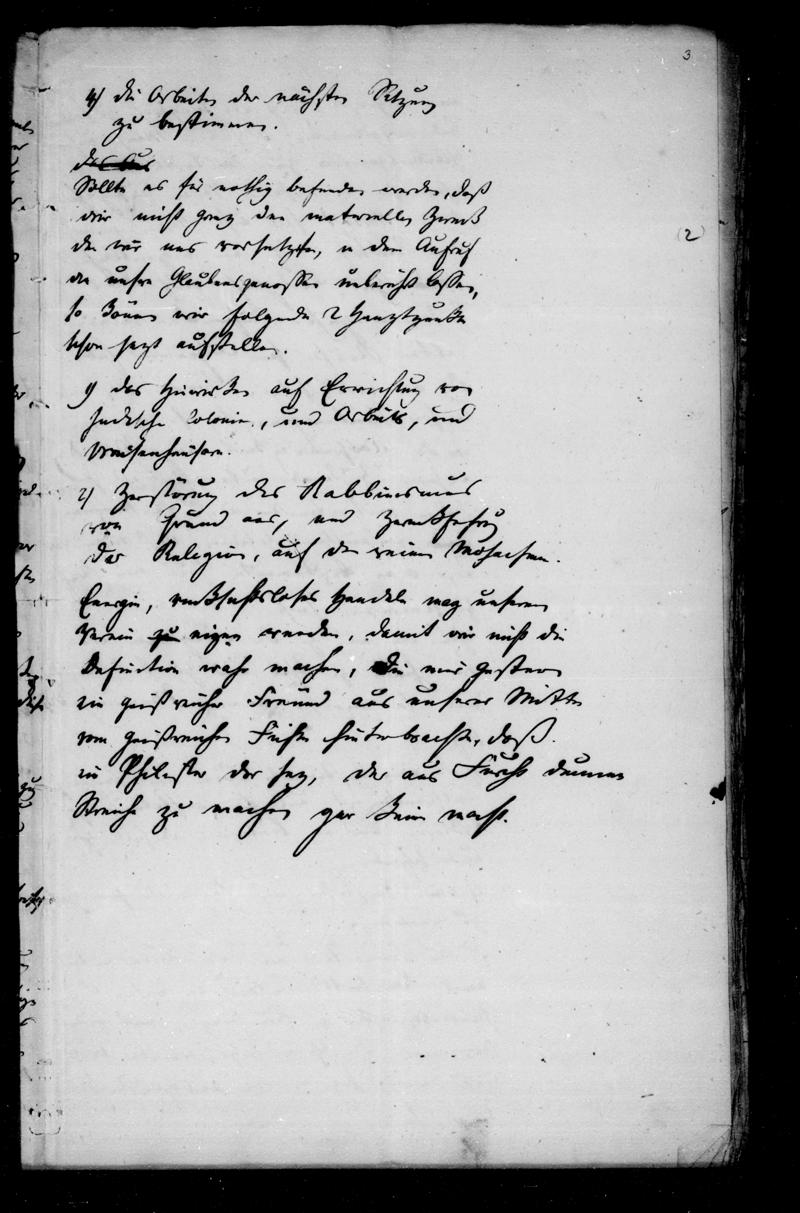 3
4) die Arbeiten der nächsten Sitzung
zu bestimmen.
das
Sollte es für nothig befunden werden, daß
wir nicht ganz den materiellen Zweck
den wir uns vorsetzten, u den Aufruf
an unsre Glaubensgenossen unberührt lassen,
(2)
so könen wir folgende 2 Hauptpunkte
schon jezt aufstellen.
1) das Hinwirken auf Errichtung von
Judische Colonien, und Arbeits, und
Waisenhäusern.
2) Zerstörung des Rabbinismus
von Grund aus, und Zurükfürung
der Religion, auf den reinen Mosaismus.
Energie, rücksichtsloses Handeln mag unserem
Verein zu eigen werden, damit wir nicht die
Definition wahr machen, die mir gestern
ein geistreicher Freund aus unserer Mitte
vom geistreichen hinterbrachte, daß
ein Philister der sey, der aus Furcht dumme
Streiche zu machen gar keine macht.